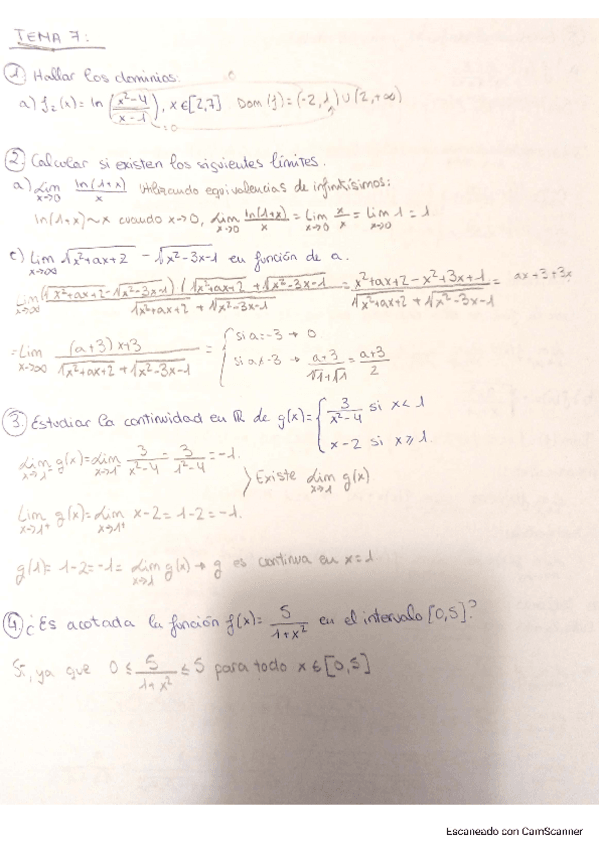 TEMA 7:
① Hallar los dominios:
a) f₂(x) = ln (x²-4 / x-1), x ∈ [2,7] Dom(f) = (-2,1) ∪ (2,+∞)
=0
② Calcular si existen los siguientes límites.
a) Lim x→0 ln(1+x)/x Utilizando equivalencias de infinitésimos:
ln(1+x) ~ x cuando x→0, Lim x→0 ln(1+x)/x = Lim x→0 x/x = Lim x→0 1 = 1
c) Lim x→∞ √(x²+ax+2) - √(x²-3x-1) en función de a.
Lim x→∞ (√(x²+ax+2) - √(x²-3x-1)) (√(x²+ax+2) + √(x²-3x-1)) / (√(x²+ax+2) + √(x²-3x-1)) = (x²+ax+2-x²+3x+1) / (√(x²+ax+2) + √(x²-3x-1)) = ax+3+3x
= Lim x→∞ ((a+3)x+3) / (√(x²+ax+2) + √(x²-3x-1)) = { si a=-3 → 0
si a≠-3 → (a+3)/(√1+√1) = (a+3)/2
③ Estudiar la continuidad en ℝ de g(x) = { 3/(x²-4) si x<1
x-2 si x≥1.
Lim x→1⁻ g(x) = Lim x→1⁻ 3/(x²-4) = 3/(1²-4) = -1.
⟩ Existe Lim x→1 g(x)
Lim x→1⁺ g(x) = Lim x→1⁺ x-2 = 1-2 = -1.
g(1) = 1-2 = -1 = Lim x→1 g(x) → g es continua en x=1
④ ¿Es acotada la función f(x) = 5/(1+x²) en el intervalo [0,5]?
Sí, ya que 0 ≤ 5/(1+x²) ≤ 5 para todo x ∈ [0,5]
Escaneado con CamScanner